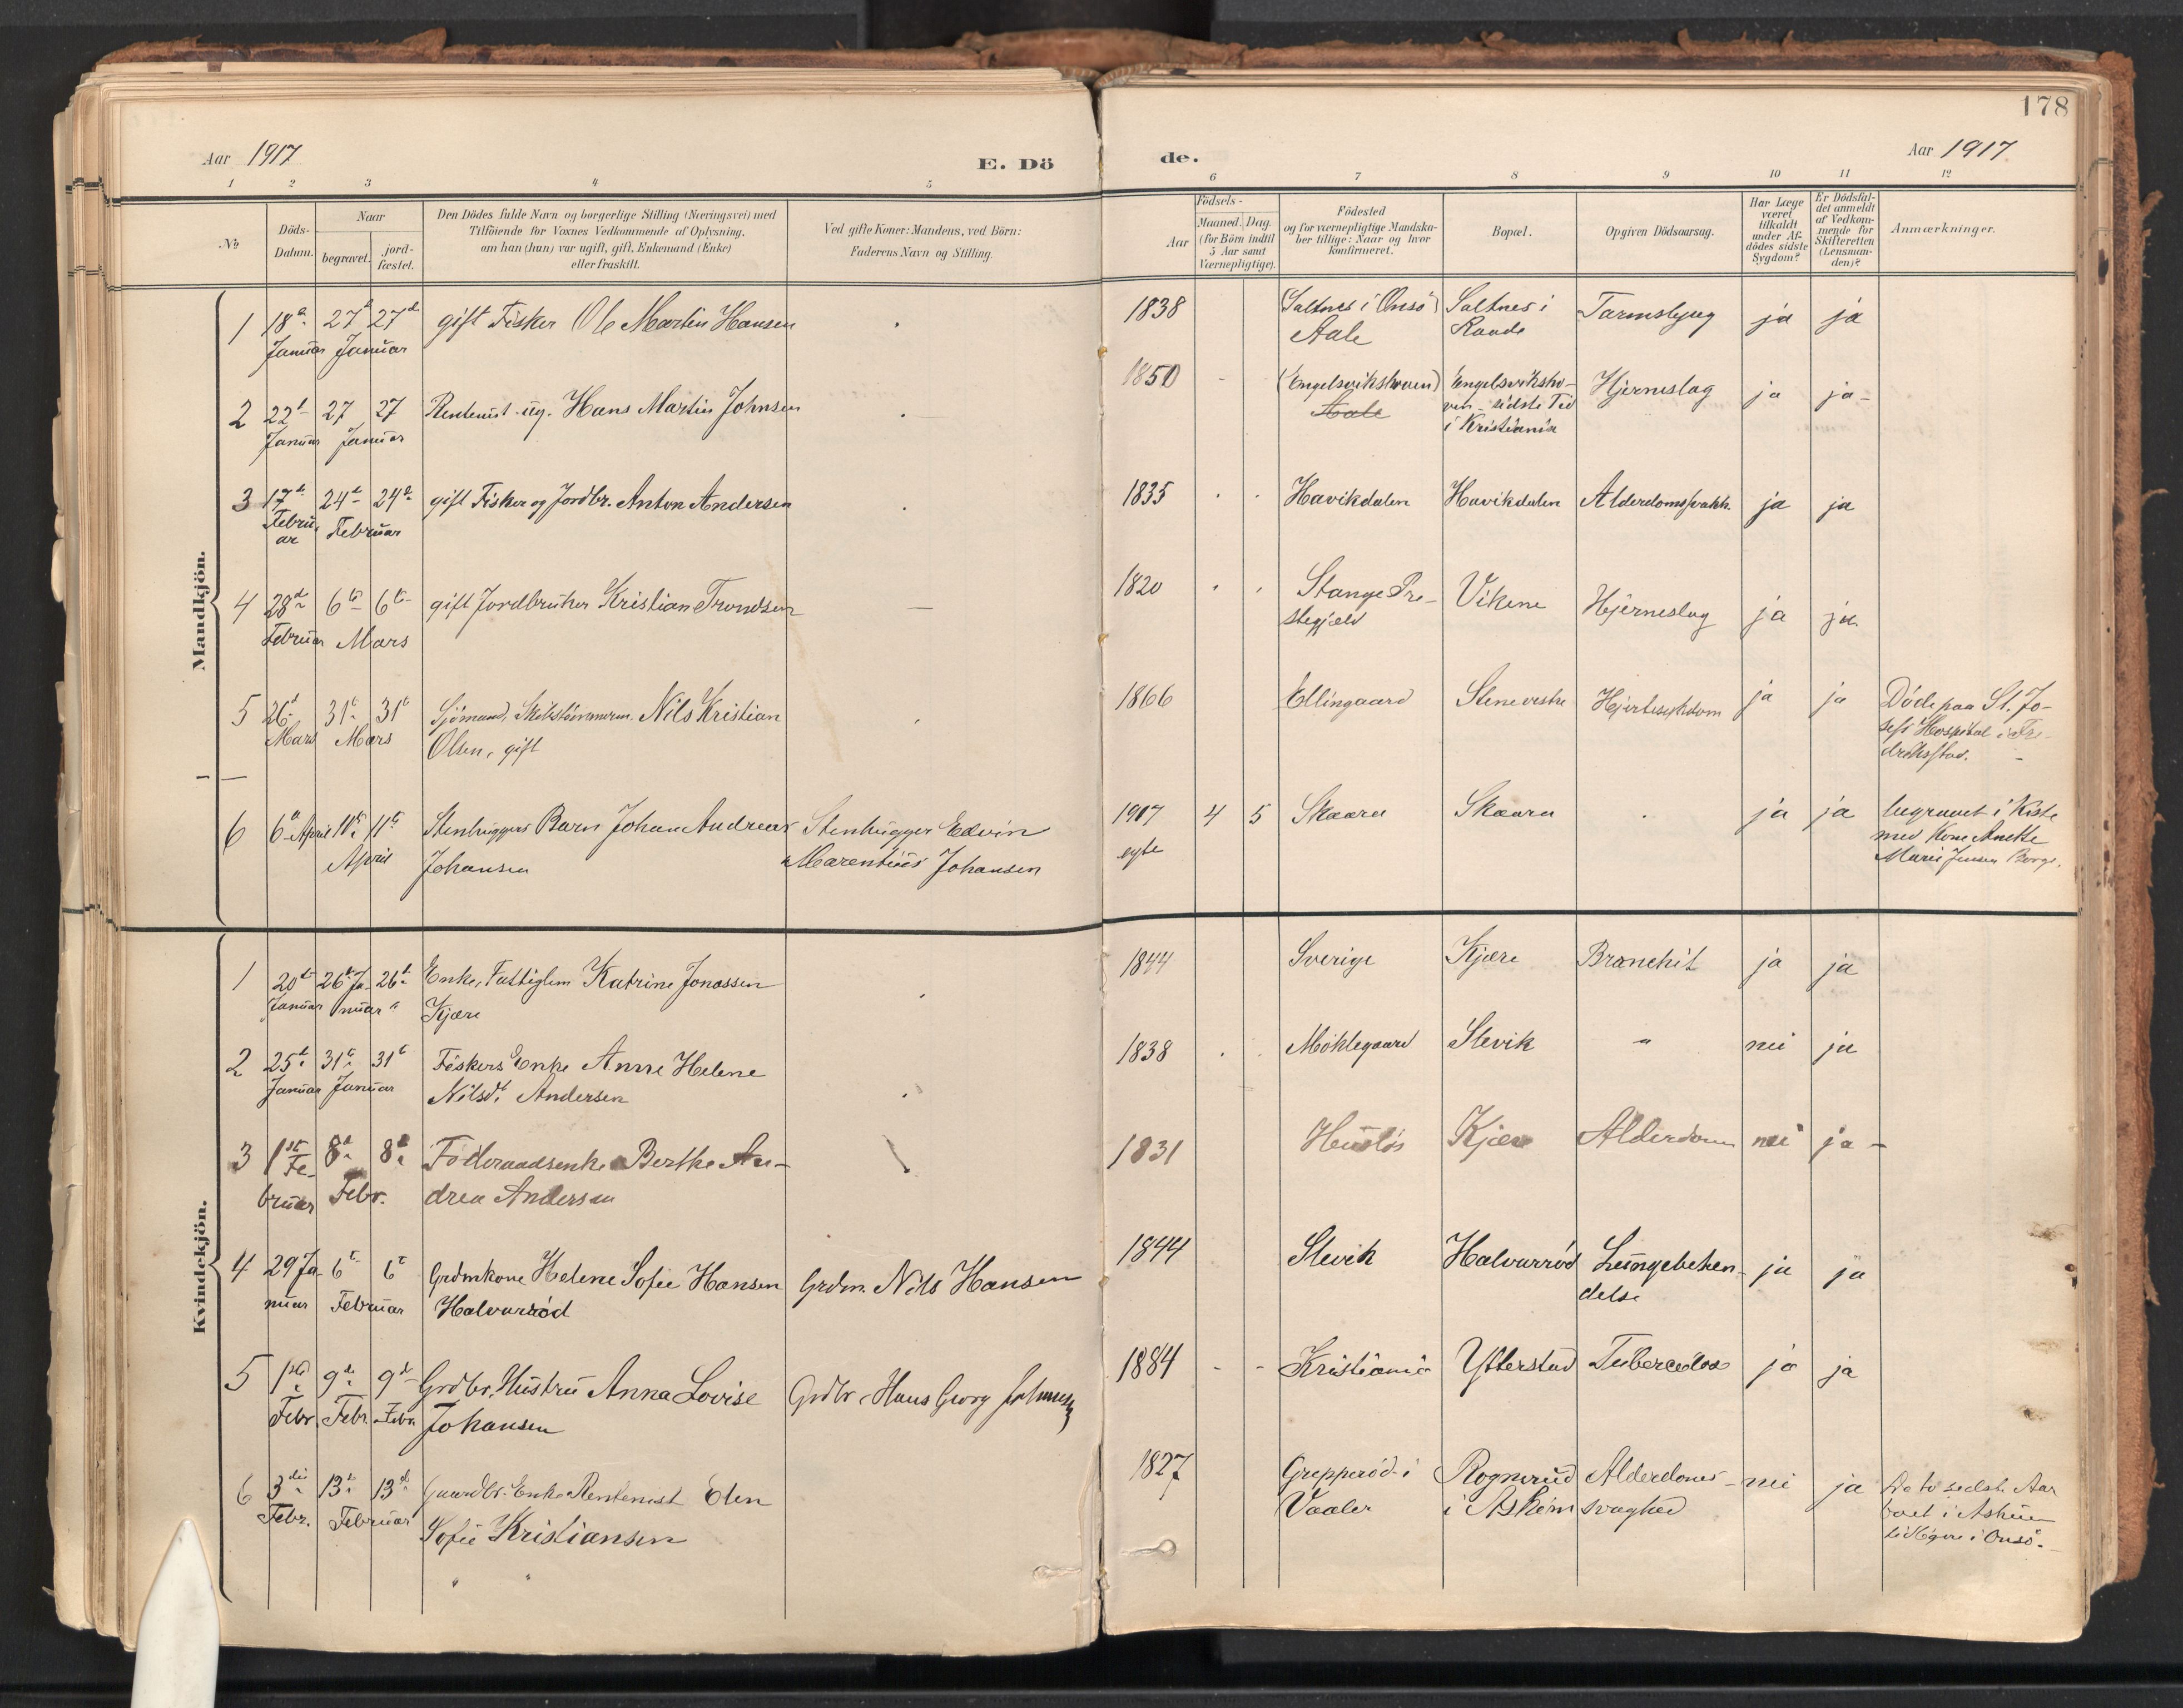 178
Aar 1917
E. Dö
de.
Aar 1917
1 2 3 4 5
6 7 8 9 10 11 12
No
Döds-
Datum.
Naar
begravet.
jord-
fæstet.
Den Dödes fulde Navn og borgerlige Stilling (Næringsvei) med
Tilföiende for Voxnes Vedkommende af Oplysning,
om han (hun) var ugift, gift, Enkemand (Enke)
eller fraskilt.
Ved gifte Koner: Mandens, ved Börn:
Faderens Navn og Stilling.
Födsels-
Aar
Maaned. Dag.
(for Börn indtil
5 Aar samt
Værnepligtige).
Födested
og for værnepligtige Mandska-
ber tillige: Naar og hvor
konfirmeret.
Bopæl.
Opgiven Dödsaarsag.
Har Læge
været
tilkaldt
under Af-
dödes sidste
Sygdom?
Er Dödsfal-
det anmeldt
af Vedkom-
mende for
Skifteretten
(Lensman-
den)?
Anmærkninger.
Mandkjön.
1 18de Januar 27de 27de Januar
gift Fisker Ole Martin Hansen
1838
(Saltnes i Onsö)
Aale
Saltnes i
Raade
ja ja
2 22de Januar 27 27 Januar
Rentenist ug. Hans Martin Johnsen
1850 -
(Engelsvikshaven)
Aale
Engelsviksha-
ven - sidste Tid
i Kristiania
Hjerneslag
ja ja-
3 17de Februar 24de 24de Februar
gift Fisker og Jordbr. Anton Andersen
1835
Havikdalen
Havikdalen
Alderdomssvakh.
ja ja
4 28de Februar 6te 6te Mars
gift Jordbruker Kristian Trondsen
—
1820
Stange Pre-
stegjeld
Vikene
Hjerneslag
ja ja
5 26de Mars 31te 31te Mars
Sjömand, Nils Kristian
Olsen, gift
1866
Ellingaard
Stene vestre
Hjertesykdom
ja ja
Döde paa St. Jo-
sefs Hospital i Fre-
drikstad.
6 6te April 11te 11te April
Stenhuggers Barn Johan Andreas
Johansen
Stenhugger Edvin
Marentius Johansen
1917 4 5
egte
Skaara
Skaara
ja ja
begravet i Kiste
med Kone Anette
Marie Jensen Borge.
Kvindekjön.
1 20de Januar 26de Januar 26de "
Enke, Fattiglem Katrine Jonassen
Kjære
1844
Sverige
Kjære
Bronchit
ja ja
2 25de Januar 31te 31te Januar
Fiskers Enke Anne Helene
Nilsdt. Andersen
1838
Möklegaard
Slevik
"
nei ja
3 1ste Februar 8de 8de Febr.
Föderaadsenke Berthe An-
drea Andersen
1831
Huslös
Kjære
Alderdom
nei ja-
4 29 Januar 6te 6te Februar
Grdmkone Helene Sofie Hansen
Halvarröd
Grdm. Nils Hansen
1844
Slevik
Halvarröd
Lungebeten-
delse
ja ja
5 1ste Febr. 9de Febr. 9de Febr.
Grdbr. Hustru Anna Lovise
Johansen
Grdbr. Hans Georg Johansen
1884 - -
Kristiania
Ytterstad
Tuberculos
ja ja
6 3die Febr. 13de 13de Februar
Gaardbr. Enke Rentenist Elen
Sofie Kristiansen
" "
1827
Grepperöd i
Vaaler
Rognerud
i Askim
Alderdoms-
svaghed
nei ja
De to sidste Aar
boet i Askim
tidligere i Onsö.